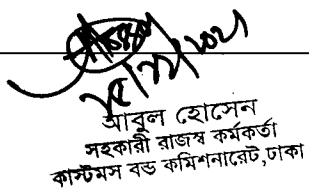 আবুল হোসেন
সহকারী রাজস্ব কর্মকর্তা
কাস্টমস বন্ড কমিশনারেট, ঢাকা